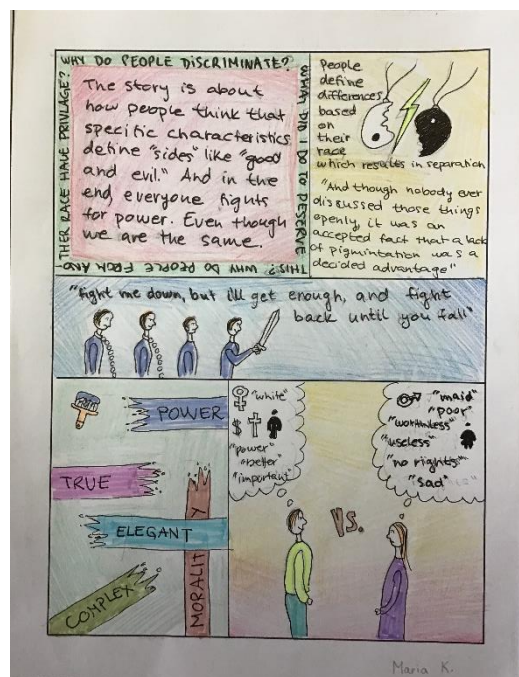 WHY DO PEOPLE DISCRIMINATE?
WHAT DID I DO TO DESERVE
THIS? WHY DO PEOPLE FROM ANO-
THER RACE HAVE PRIVLAGE?
The story is about
how people think that
specific characteristics
define "sides" like "good
and evil." And in the
end, everyone fights
for power. Even though
we are the same.
People
define
differences
based
on
their
race
which results in separation
"And though nobody ever
discussed those things
openly, it was an
accepted fact that a lack
of pigmintation was a
decided advantage"
"fight me down, but ill get enough, and fight
back until you fall"
POWER
TRUE
ELEGANT
MORALITY
COMPLEX
"white"
$
"power"
"better"
"important"
"maid"
"poor"
"worthless"
"useless"
"no rights"
"sad"
VS.
Maria K.